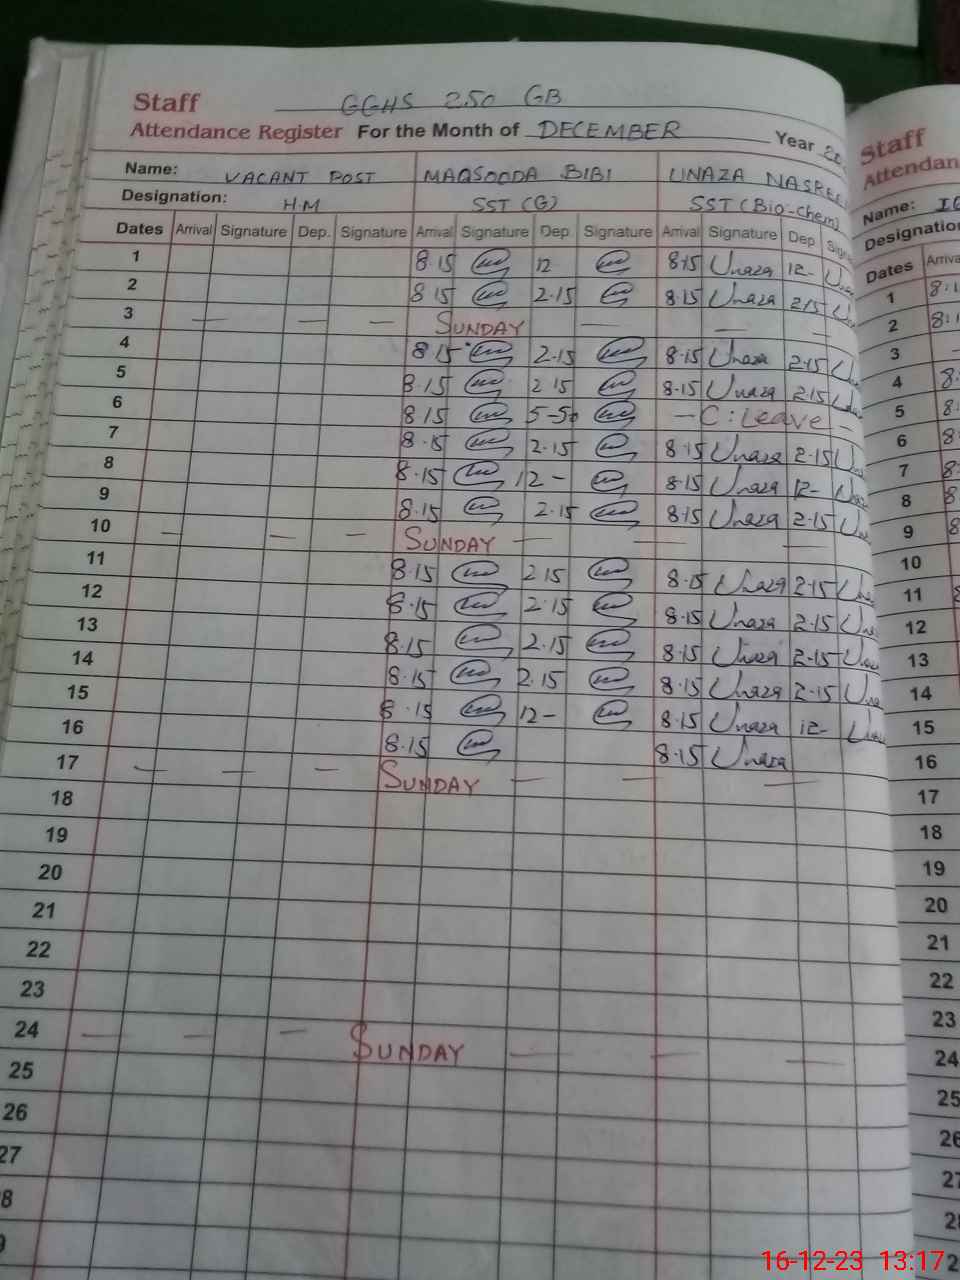 Staff GGHS 250 GB
Attendance Register For the Month of DECEMBER Year
Name: VACANT POST MAQSOODA BIBI UNAZA
Designation: H.M SST (G) SST (Bio-Chem)
Dates Arrival Signature Dep. Signature Arrival Signature Dep Signature Arrival Signature Dep
1 8.15 12 8.15 Unaza 12-
2 8.15 2.15 8.15 Unaza 2.15
3 — — — SUNDAY — — —
4 8.15 2.15 8.15 Unaza 2.15
5 8.15 2.15 8.15 Unaza 2.15
6 8.15 5-50 — C:Leave —
7 8.15 2.15 8.15 Unaza 2.15
8 8.15 12- 8.15 Unaza 12-
9 8.15 2.15 8.15 Unaza 2.15
10 — — — SUNDAY — — —
11 8.15 2.15 8.15 Unaza 2.15
12 8.15 2.15 8.15 Unaza 2.15
13 8.15 2.15 8.15 Unaza 2.15
14 8.15 2.15 8.15 Unaza 2.15
15 8.15 12- 8.15 Unaza 12-
16 8.15 8.15 Unaza
17 — — — SUNDAY — — —
18
19
20
21
22
23
24 — — — SUNDAY — — —
25
26
27
Staff
Name:
Dates
1
2
3
4
5
6
7
8
9
10
11
12
13
14
15
16
17
18
19
20
21
22
23
24
25
16-12-23 13:17